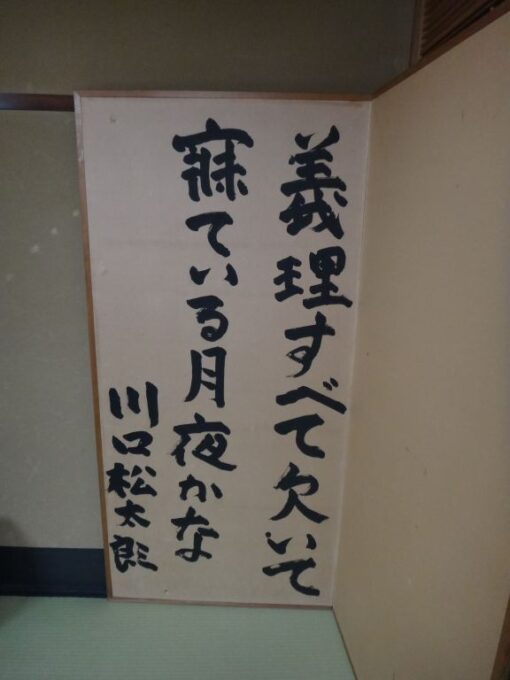 義理すべて欠いて
寐ている月夜かな
川口松太郎